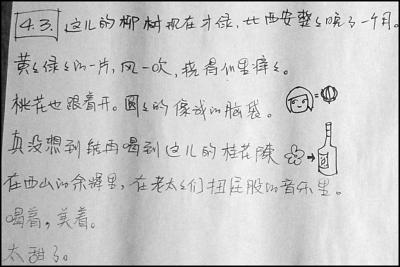 4.3. 这儿的柳树现在才绿,比西安整整晚了一个月。
黄黄绿绿的一片,风一吹,挠得心里痒痒。
桃花也跟着开。圆圆的像我的脑袋。
真没想到能再喝到这儿的桂花陈
在西山的余晖里,在老太太们扭屁股的音乐里。
喝着,笑着。
太甜了。